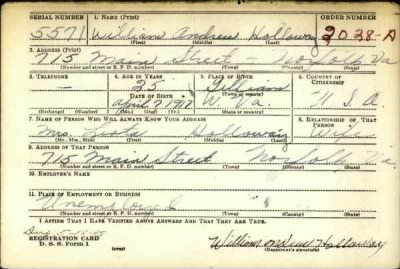 SERIAL NUMBER 1. NAME (Print) ORDER NUMBER
5571 William Andrew Holloway 2028-A
(First) (Middle) (Last)
2. ADDRESS (Print)
715 Main Street - Norfolk Va
(Number and street or R. F. D. number) (Town) (County) (State)
3. TELEPHONE 4. AGE IN YEARS 5. PLACE OF BIRTH 6. COUNTRY OF CITIZENSHIP
- 25
DATE OF BIRTH (Town or county)
April 7 1917 W. Va. U.S.A.
(Exchange) (Number) (Mo.) (Day) (Yr.) (State or country)
7. NAME OF PERSON WHO WILL ALWAYS KNOW YOUR ADDRESS 8. RELATIONSHIP OF THAT PERSON
Mrs. Holloway Wife
(Mr., Mrs., Miss) (First) (Middle) (Last)
9. ADDRESS OF THAT PERSON
715 Main Street Norfolk Va.
(Number and street or R. F. D. number) (Town) (County) (State)
10. EMPLOYER'S NAME
11. PLACE OF EMPLOYMENT OR BUSINESS
Unemployed
(Number and street or R. F. D. number) (Town) (County) (State)
I AFFIRM THAT I HAVE VERIFIED ABOVE ANSWERS AND THAT THEY ARE TRUE.
REGISTRATION CARD
D. S. S. Form 1 William Andrew Holloway
(Registrant's signature)